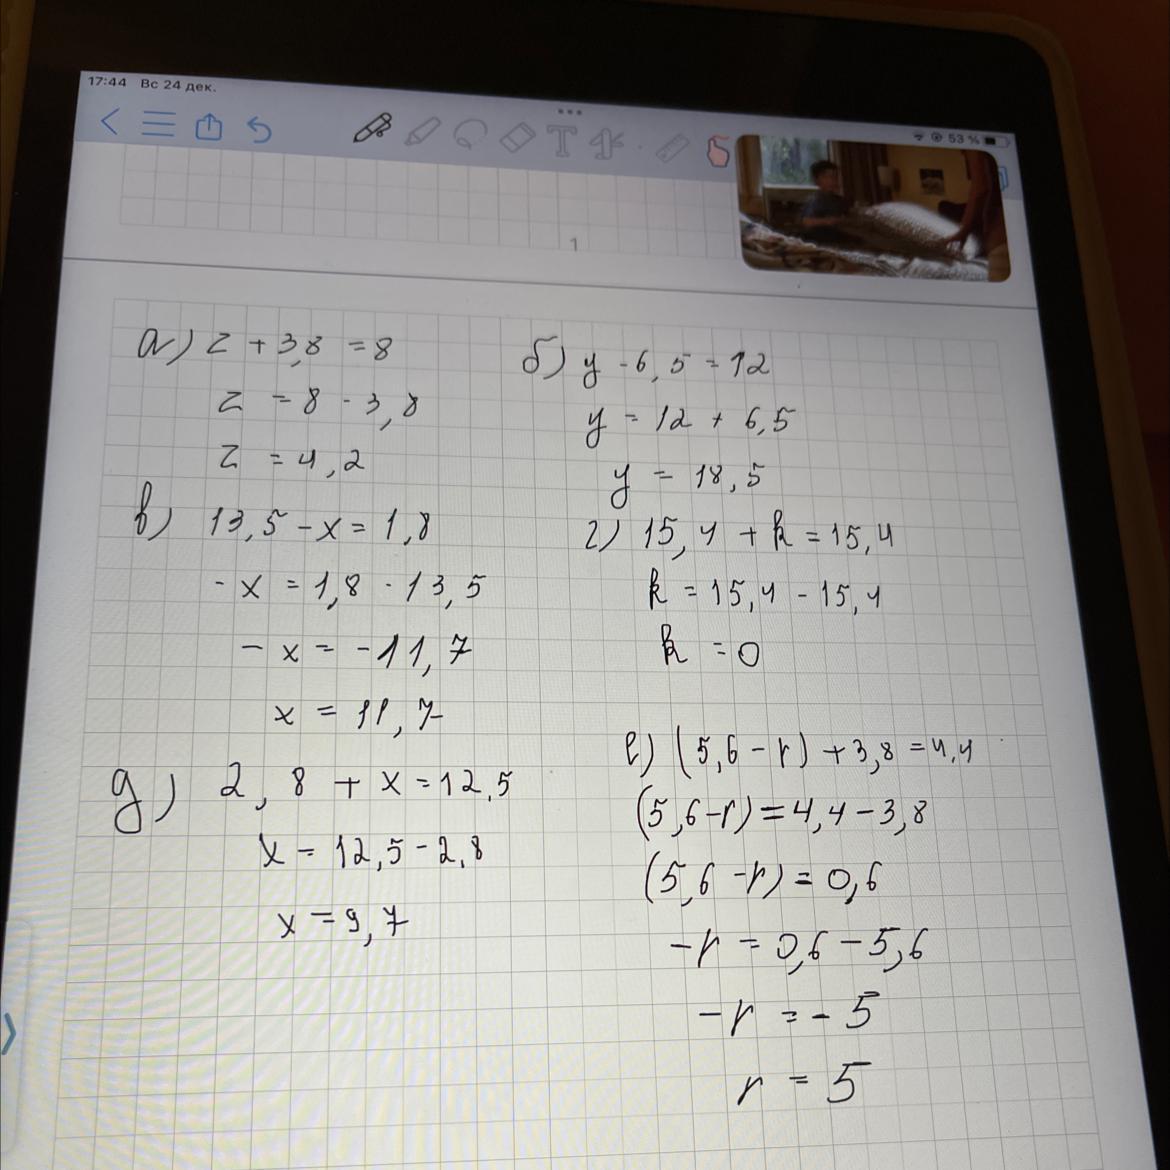 17:44 Вс 24 дек.
53 %
1
а) z + 3,8 = 8
z = 8 - 3,8
z = 4,2
б) y - 6,5 = 12
y = 12 + 6,5
y = 18,5
в) 13,5 - x = 1,8
- x = 1,8 - 13,5
- x = - 11,7
x = 11,7
г) 15,4 + k = 15,4
k = 15,4 - 15,4
k = 0
д) 2,8 + x = 12,5
x = 12,5 - 2,8
x = 9,7
е) (5,6 - r) + 3,8 = 4,4
(5,6 - r) = 4,4 - 3,8
(5,6 - r) = 0,6
- r = 0,6 - 5,6
- r = - 5
r = 5